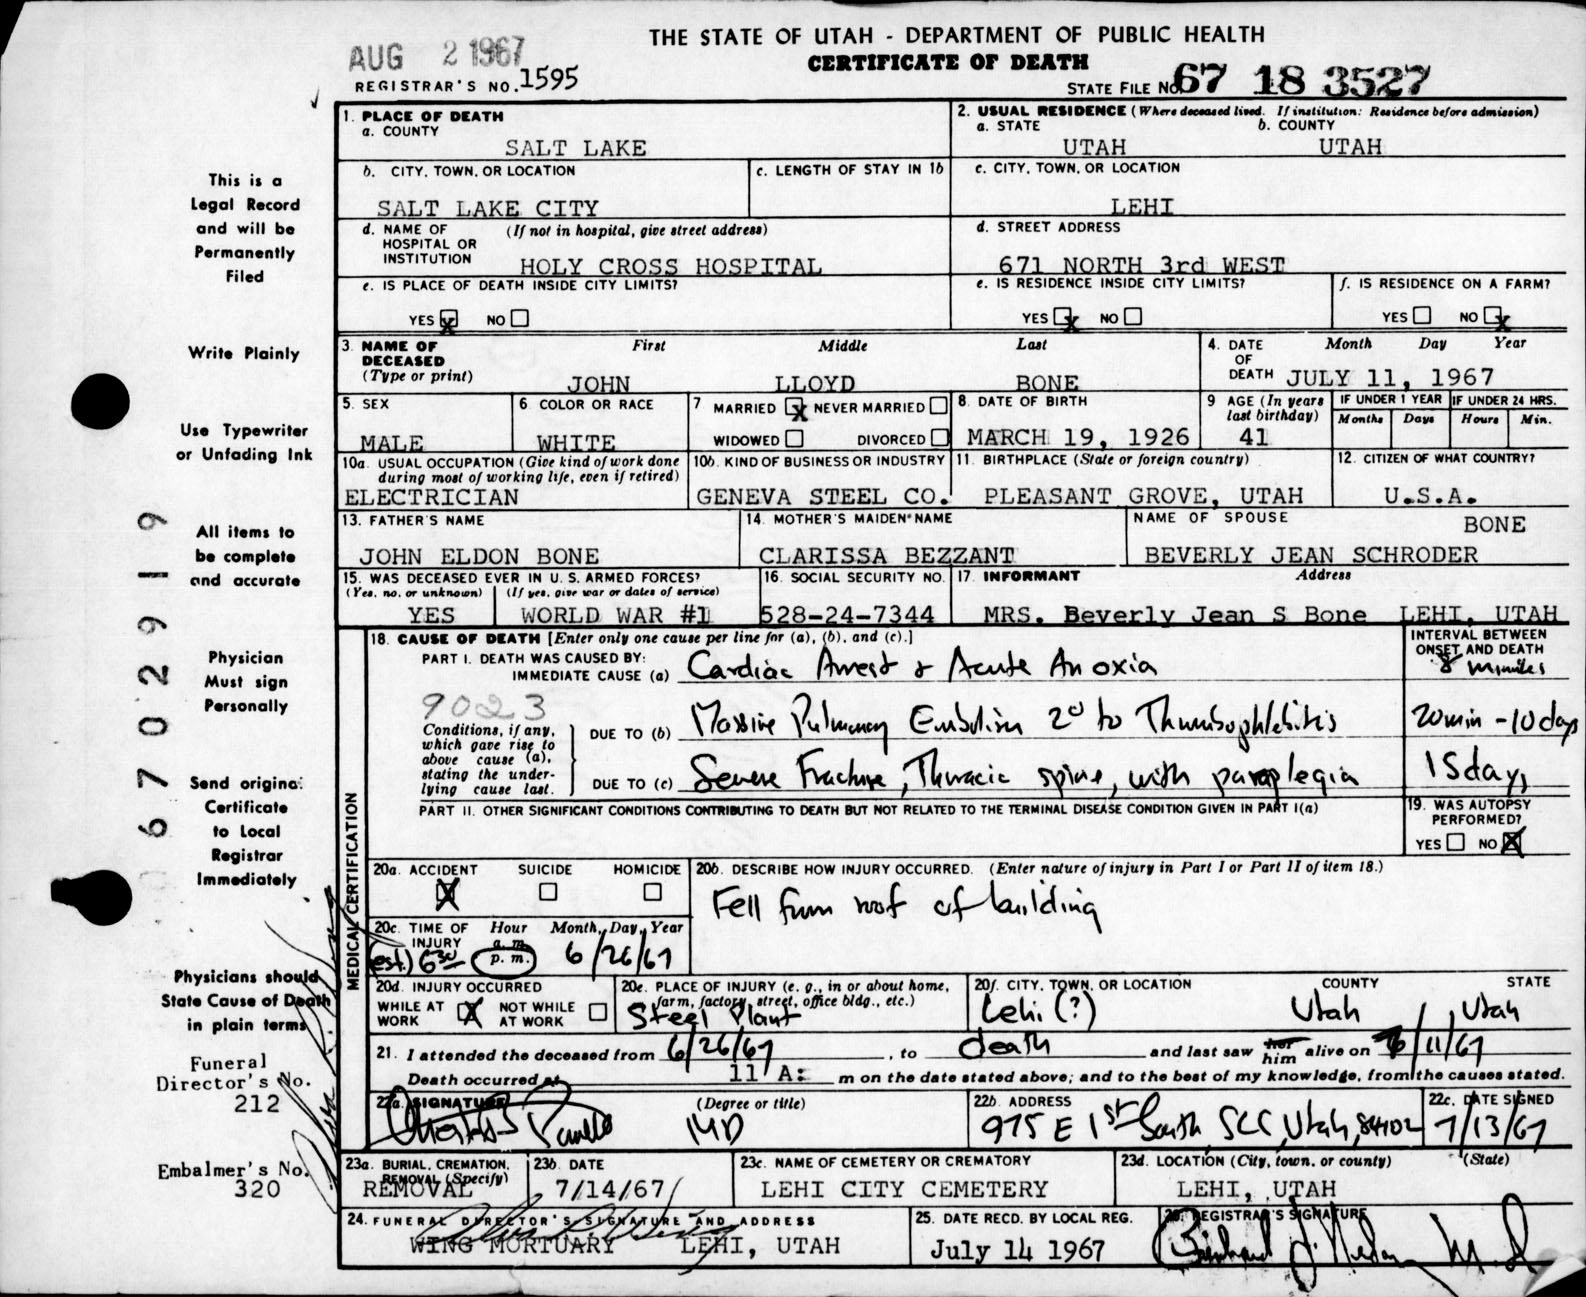 THE STATE OF UTAH - DEPARTMENT OF PUBLIC HEALTH
CERTIFICATE OF DEATH
AUG 2 1967
REGISTRAR'S NO. 1595
STATE FILE NO. 67 18 3527
1. PLACE OF DEATH
a. COUNTY
SALT LAKE
2. USUAL RESIDENCE (Where deceased lived. If institution: Residence before admission)
a. STATE b. COUNTY
UTAH UTAH
b. CITY, TOWN, OR LOCATION
SALT LAKE CITY
c. LENGTH OF STAY IN 1b
c. CITY, TOWN, OR LOCATION
LEHI
d. NAME OF HOSPITAL OR INSTITUTION (If not in hospital, give street address)
HOLY CROSS HOSPITAL
d. STREET ADDRESS
671 NORTH 3rd WEST
e. IS PLACE OF DEATH INSIDE CITY LIMITS?
YES X NO
e. IS RESIDENCE INSIDE CITY LIMITS?
YES X NO
f. IS RESIDENCE ON A FARM?
YES NO X
3. NAME OF DECEASED (Type or print) First Middle Last
JOHN LLOYD BONE
4. DATE OF DEATH Month Day Year
JULY 11, 1967
5. SEX
MALE
6 COLOR OR RACE
WHITE
7 MARRIED X NEVER MARRIED
WIDOWED DIVORCED
8. DATE OF BIRTH
MARCH 19, 1926
9 AGE (In years last birthday)
41
IF UNDER 1 YEAR IF UNDER 24 HRS.
Months Days Hours Min.
10a. USUAL OCCUPATION (Give kind of work done during most of working life, even if retired)
ELECTRICIAN
10b. KIND OF BUSINESS OR INDUSTRY
GENEVA STEEL CO.
11. BIRTHPLACE (State or foreign country)
PLEASANT GROVE, UTAH
12. CITIZEN OF WHAT COUNTRY?
U.S.A.
13. FATHER'S NAME
JOHN ELDON BONE
14. MOTHER'S MAIDEN NAME
CLARISSA BEZZANT
NAME OF SPOUSE BONE
BEVERLY JEAN SCHRODER
15. WAS DECEASED EVER IN U. S. ARMED FORCES?
(Yes, no, or unknown) (If yes, give war or dates of service)
YES WORLD WAR #1
16. SOCIAL SECURITY NO.
528-24-7344
17. INFORMANT Address
MRS. Beverly Jean S Bone LEHI, UTAH
MEDICAL CERTIFICATION
18. CAUSE OF DEATH [Enter only one cause per line for (a), (b), and (c).]
INTERVAL BETWEEN ONSET AND DEATH
PART I. DEATH WAS CAUSED BY:
IMMEDIATE CAUSE (a) Cardiac Arrest & Acute Anoxia 8 minutes
9023
Conditions, if any, which gave rise to above cause (a), stating the underlying cause last.
DUE TO (b) Massive Pulmonary Embolism 2° to Thrombophlebitis 20 min - 10 days
DUE TO (c) Severe Fracture, Thoracic spine, with paraplegia 15 days
PART II. OTHER SIGNIFICANT CONDITIONS CONTRIBUTING TO DEATH BUT NOT RELATED TO THE TERMINAL DISEASE CONDITION GIVEN IN PART I(a)
19. WAS AUTOPSY PERFORMED?
YES NO X
20a. ACCIDENT SUICIDE HOMICIDE
X
20b. DESCRIBE HOW INJURY OCCURRED. (Enter nature of injury in Part I or Part II of item 18.)
Fell from roof of building
20c. TIME OF INJURY Hour Month, Day, Year
a. m.
(est.) 6 30 p. m. 6/26/67
20d. INJURY OCCURRED
WHILE AT WORK X NOT WHILE AT WORK
20e. PLACE OF INJURY (e. g., in or about home, farm, factory, street, office bldg., etc.)
Steel Plant
20f. CITY, TOWN, OR LOCATION COUNTY STATE
Lehi (?) Utah , Utah
21. I attended the deceased from 6/26/67, to death and last saw her him alive on 7/11/67
Death occurred at 11 A: m on the date stated above; and to the best of my knowledge, from the causes stated.
22a. SIGNATURE (Degree or title)
MD
22b. ADDRESS
975 E 1st South, SLC, Utah, 84102
22c. DATE SIGNED
7/13/67
23a. BURIAL, CREMATION, REMOVAL (Specify)
REMOVAL
23b. DATE
7/14/67
23c. NAME OF CEMETERY OR CREMATORY
LEHI CITY CEMETERY
23d. LOCATION (City, town, or county) (State)
LEHI, UTAH
24. FUNERAL DIRECTOR'S SIGNATURE AND ADDRESS
WING MORTUARY LEHI, UTAH
25. DATE RECD. BY LOCAL REG.
July 14 1967
26. REGISTRAR'S SIGNATURE
This is a
Legal Record
and will be
Permanently
Filed
Write Plainly
Use Typewriter
or Unfading Ink
All items to
be complete
and accurate
Physician
Must sign
Personally
Send original
Certificate
to Local
Registrar
Immediately
Physicians should
State Cause of Death
in plain terms
Funeral
Director's No.
212
Embalmer's No.
320
67029 19